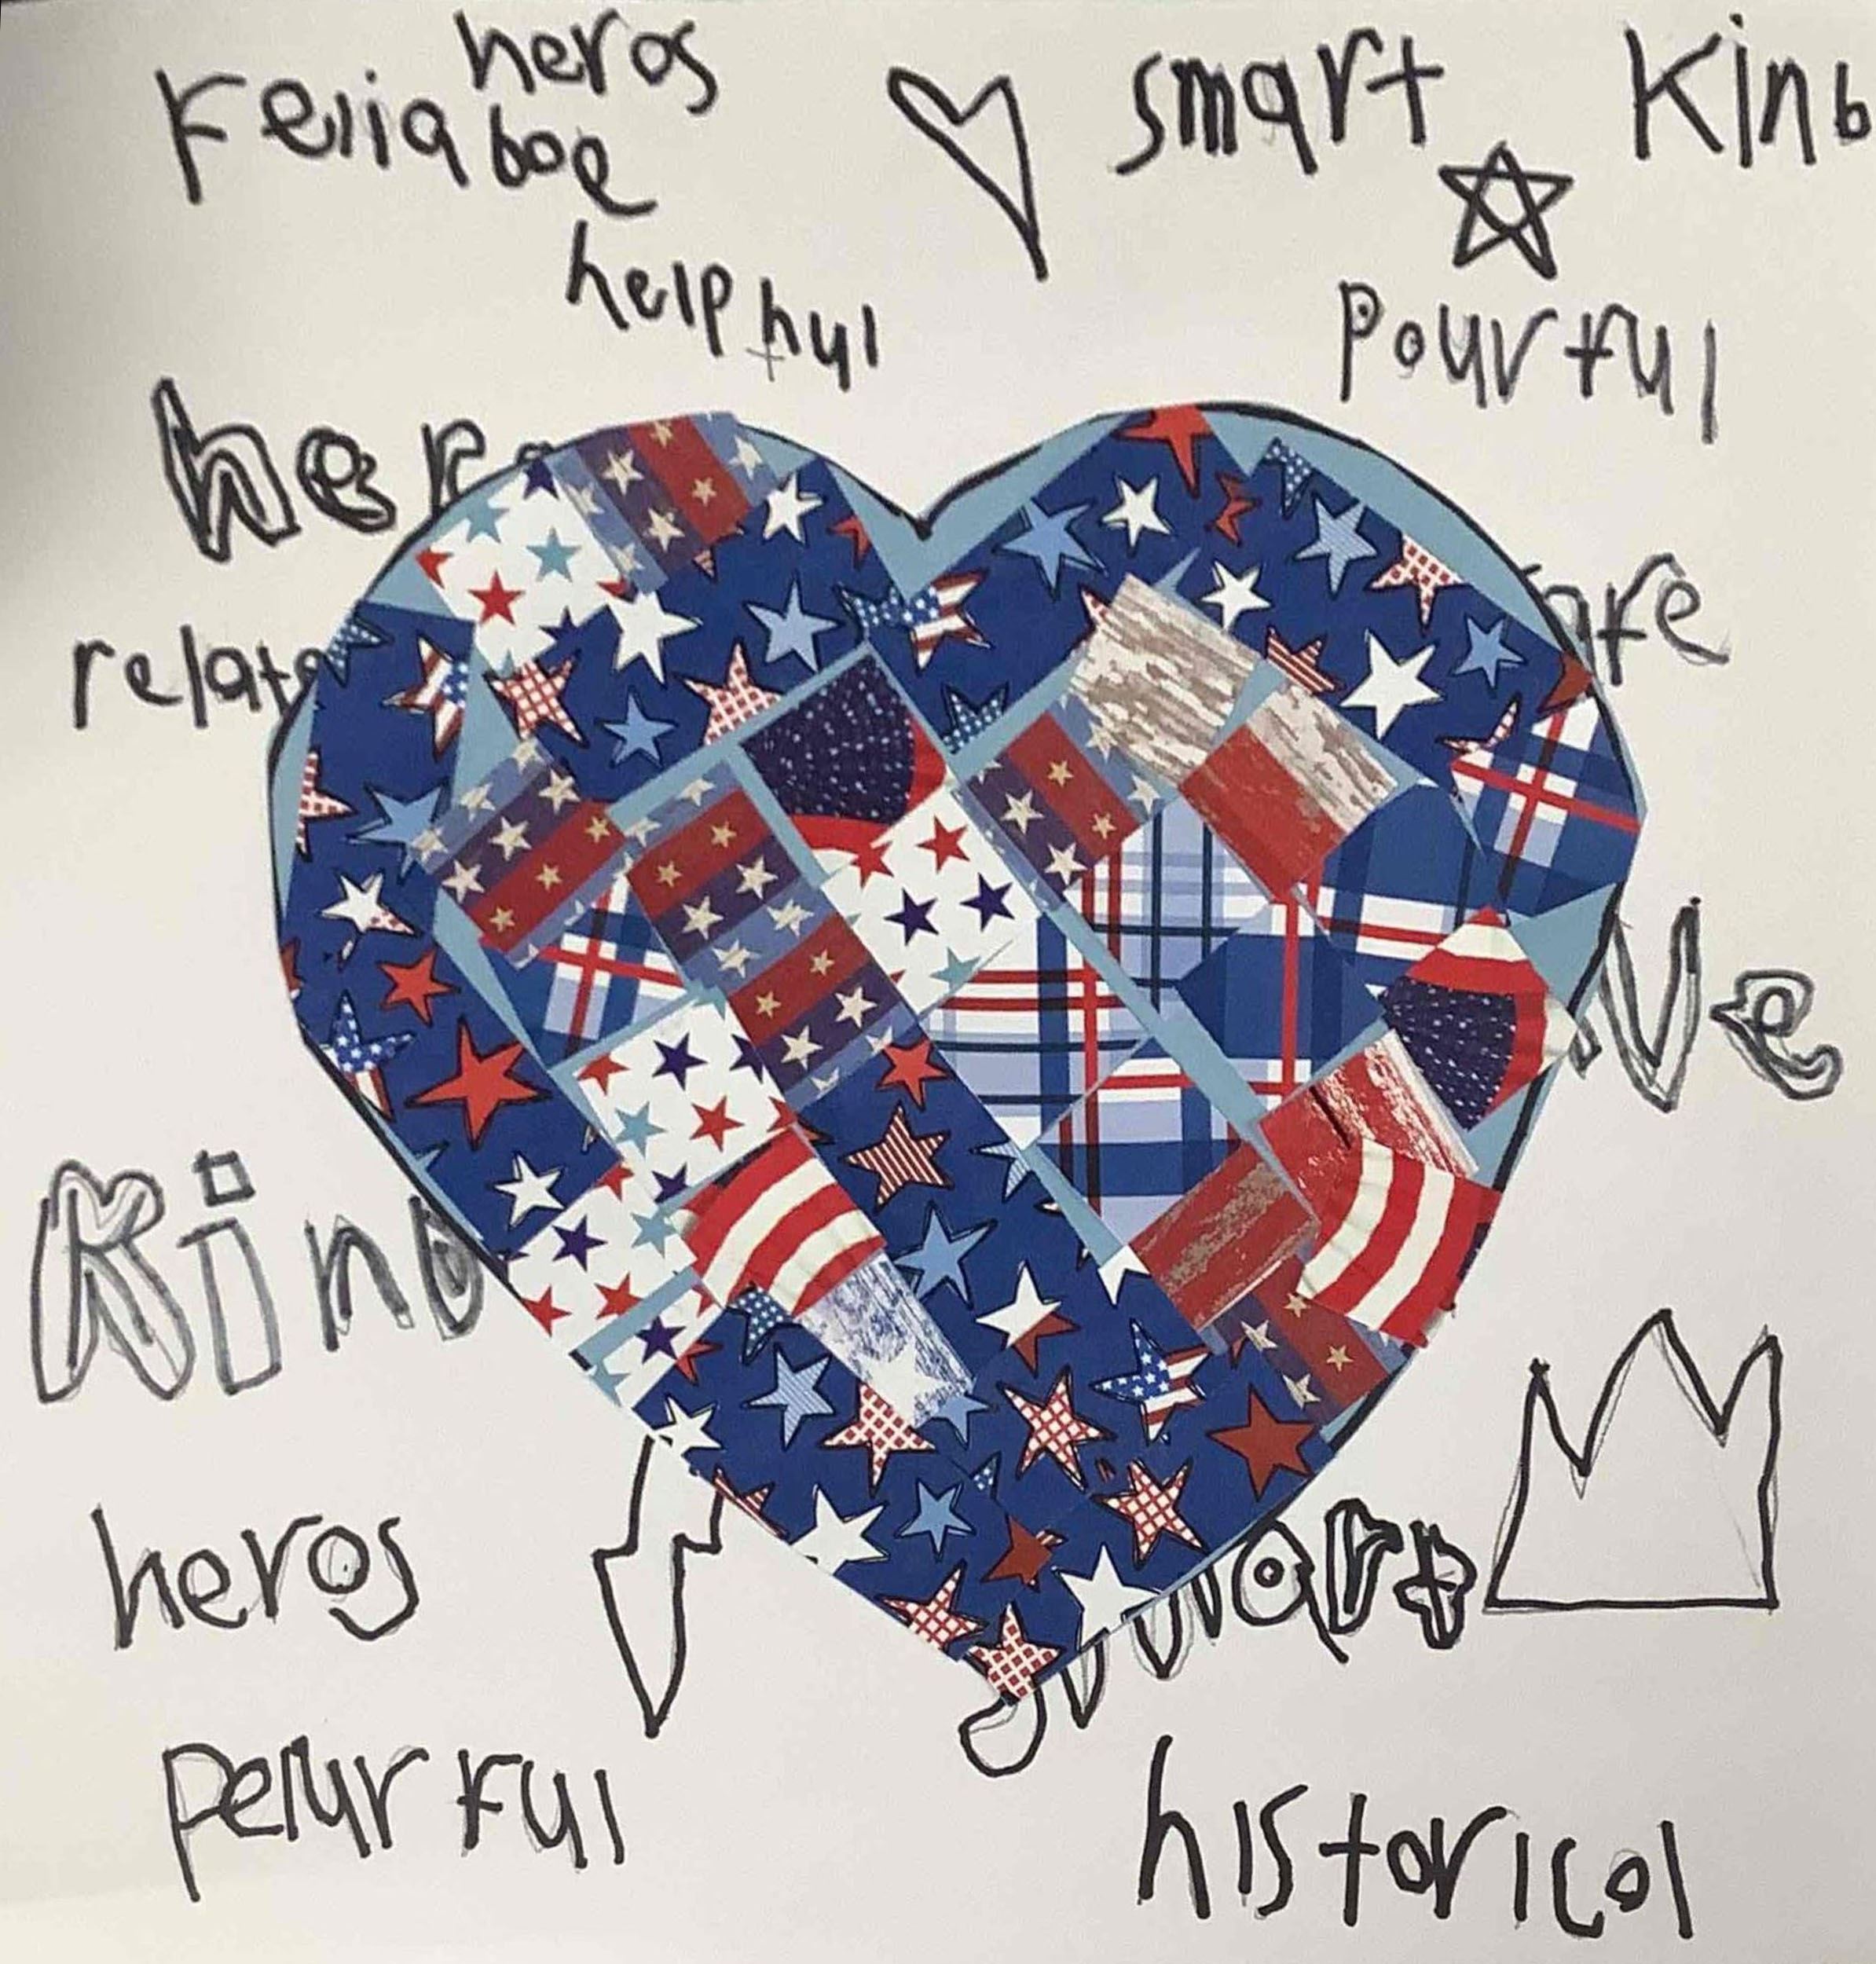 heros
smart
Kinb
helphul
pourful
hero
relate
are
ve
Kind
heros
smart
pewrful
historical